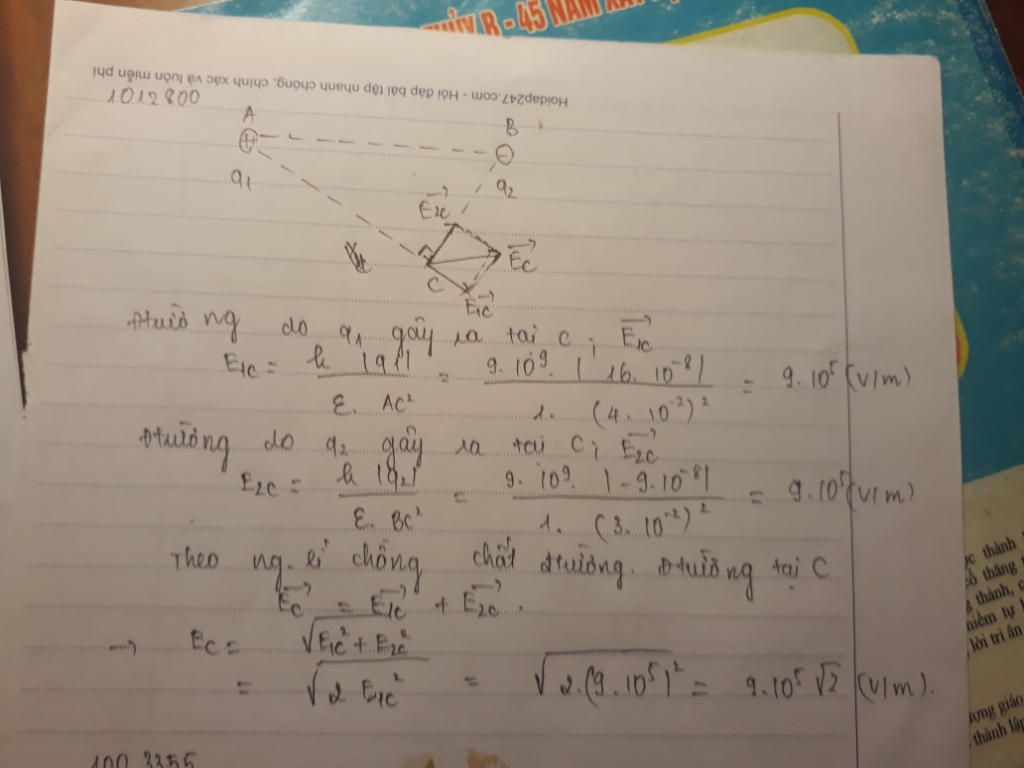 THỦY B - 45 NĂM XÂY
Hoidap247.com - Hỏi đáp bài tập nhanh chóng, chính xác và luôn miễn phí
1012800
A
B
+
-
q1
q2
E2C
EC
C
E1C
Đtường do q1 gây ra tại C; E1C
E1C = k |q1| / ε. AC² = 9.10⁹. | 16. 10⁻⁸| / 1. (4. 10⁻²)² = 9.10⁵ (V/m)
Đtường do q2 gây ra tại C; E2C
E2C = k |q2| / ε. BC² = 9. 10⁹. | -9.10⁻⁸| / 1. (3. 10⁻²)² = 9.10⁵ (V/m)
Theo ng. lí chồng chất đtường. Đtường tại C
EC = E1C + E2C.
→ EC = √E1C² + E2C²
= √2 E1C² = √2.(9.10⁵)² = 9.10⁵ √2 (V/m).
100 3355
thành
thắng
thành,
niệm tự
lời tri ân
ượng giáo
thành lập